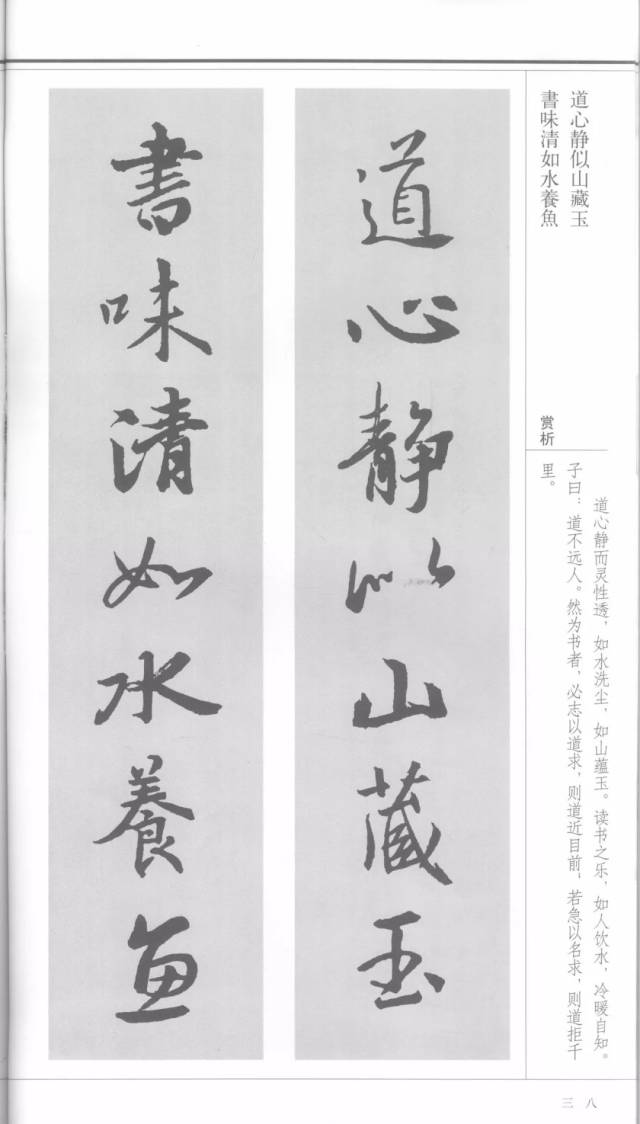 道心静似山藏玉
書味清如水養魚
赏析
道心静而灵性透，如水洗尘，如山蕴玉。读书之乐，如人饮水，冷暖自知。
子曰：道不远人。然为书者，必志以道求，则道近目前，若急以名求，则道拒千
里。
道心静似山藏玉
書味清如水養魚
三八